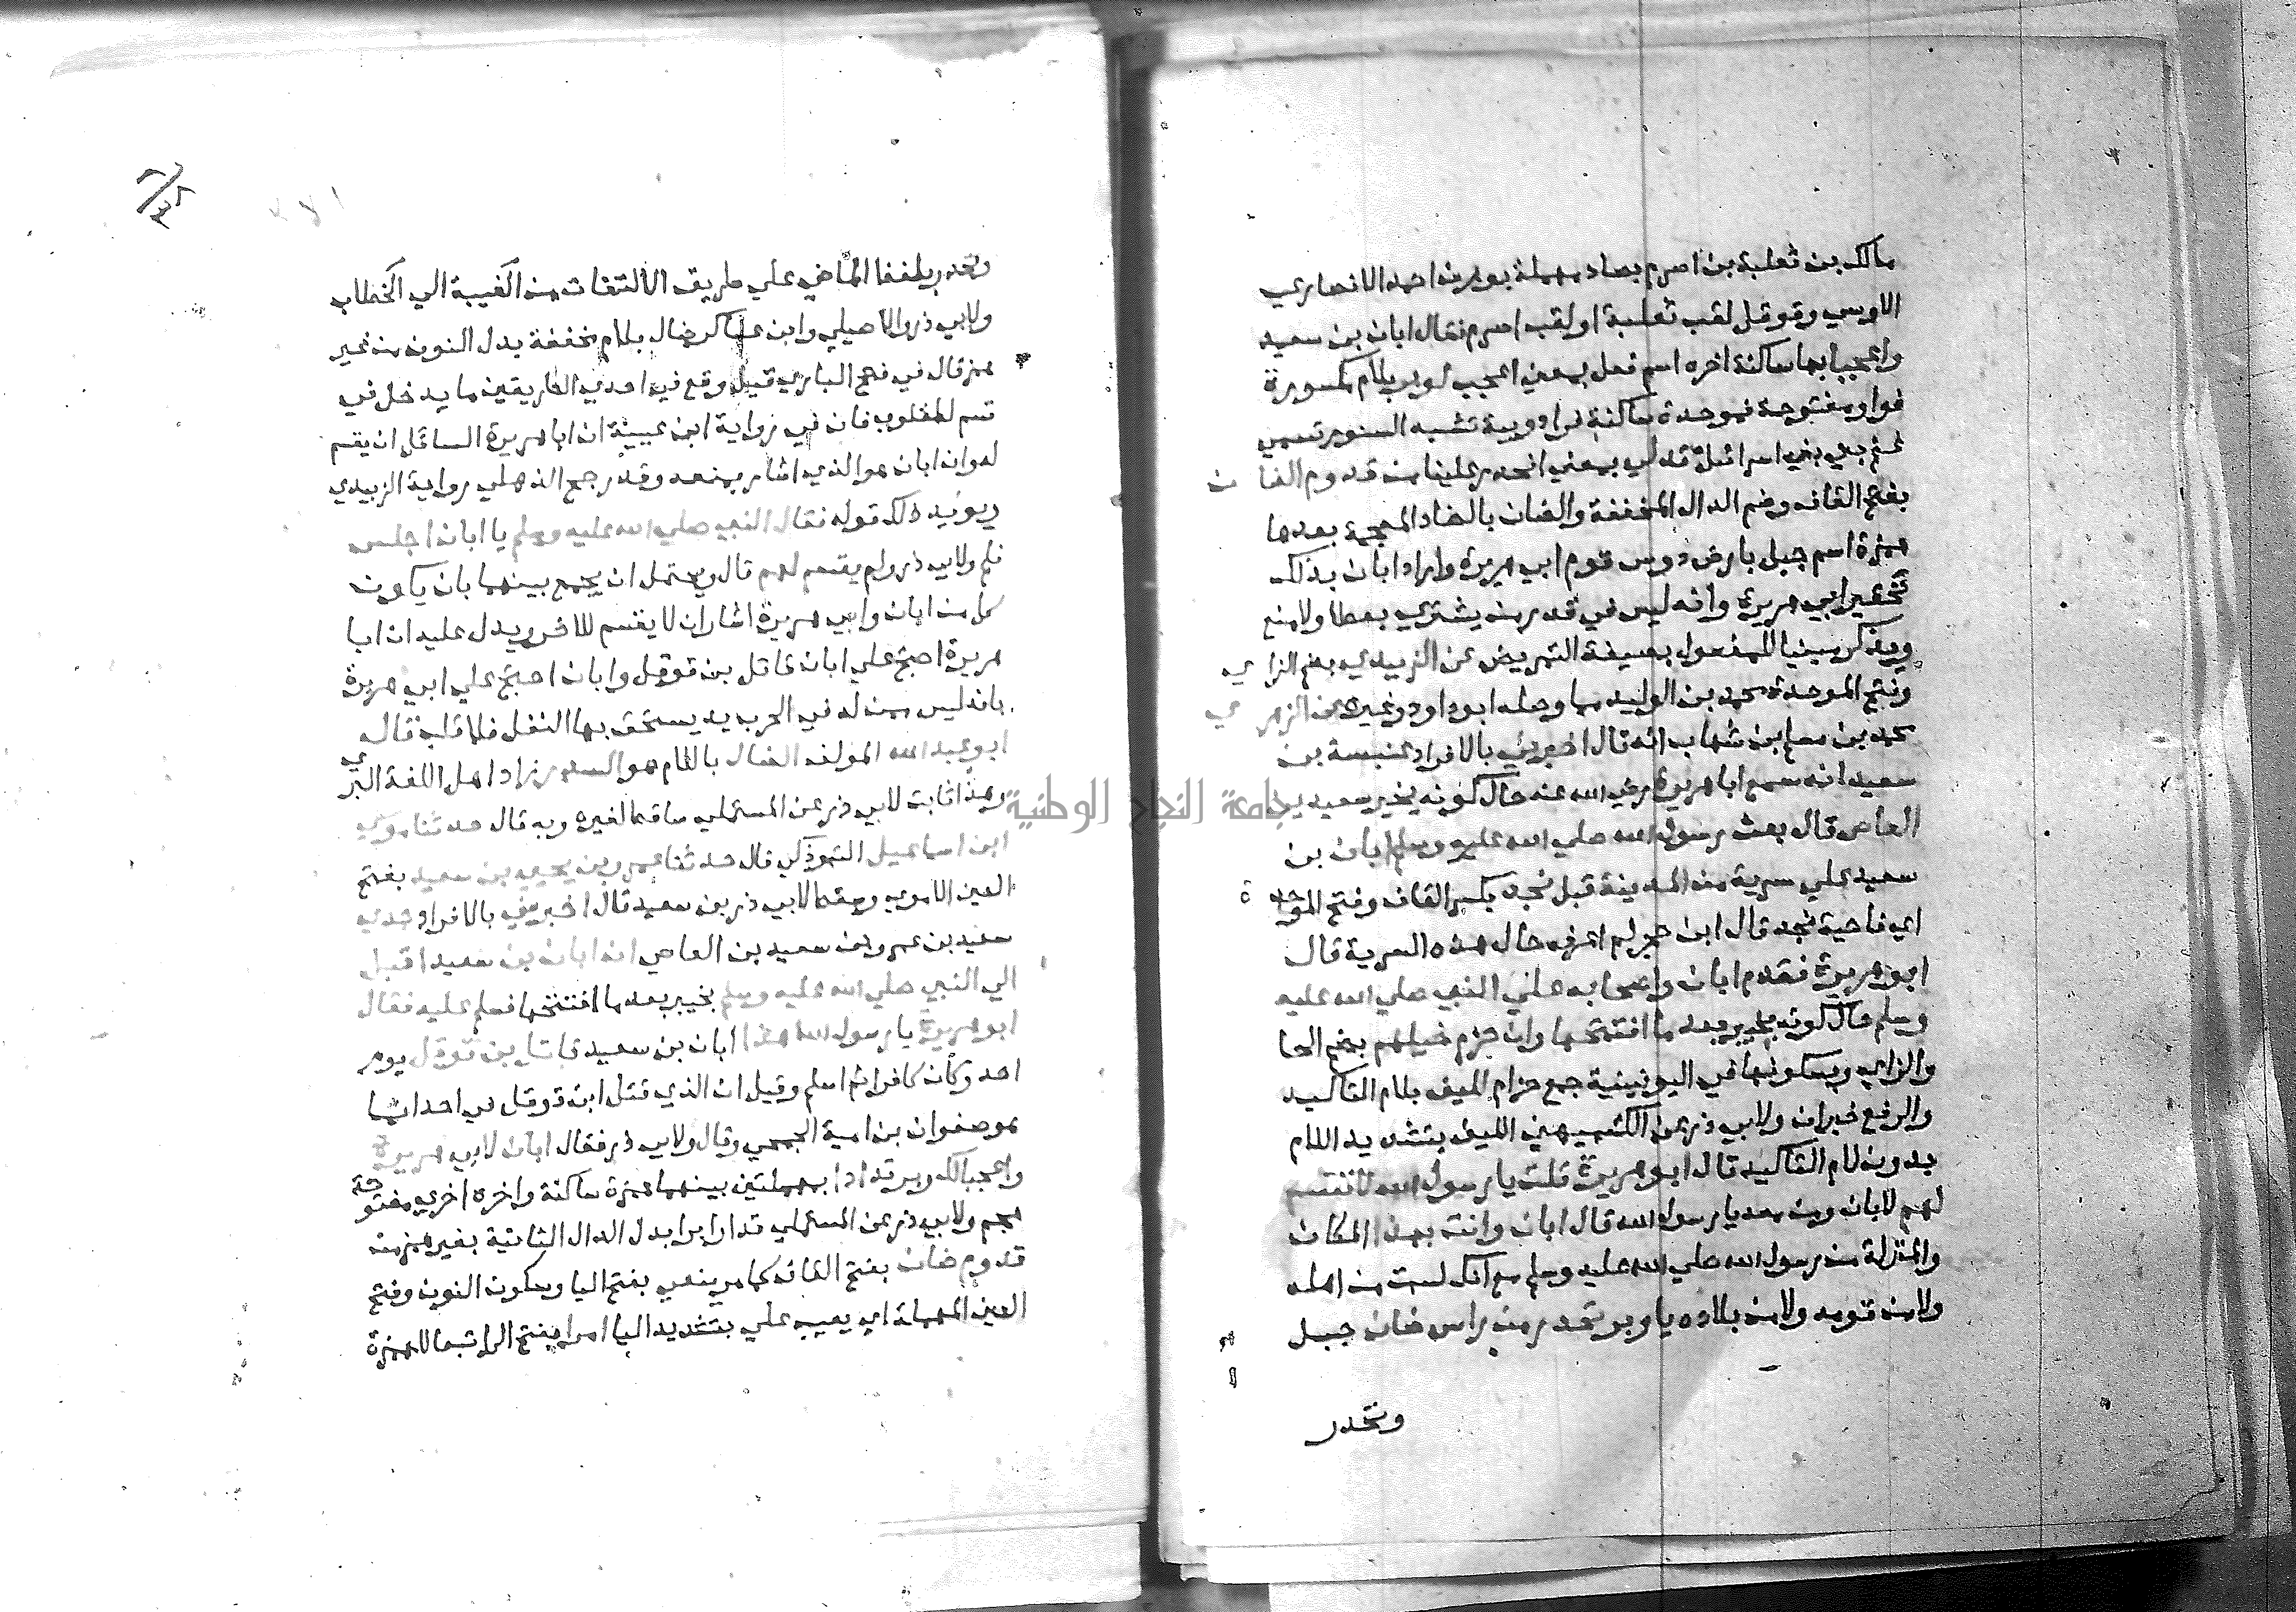 مالك بن ثعلبة بن اصرم بصاد مهملة بوزن احمد الانصاري
الاوسي وقوقل لقب ثعلبة او لقب اصرم فقال ابان بن سعيد
واعجبا بها ساكنة اخره اسم فعل بمعني اعجب لوبر بلام مكسورة
فواو مفتوحة فموحدة ساكنة فرا دويبة تشبه السنور تسمي
غنم بني اسرائيل تدلي بمعني انحدر علينا من قدوم الضان
بفتح القاف وضم الدال المخففة والضان بالضاد المعجمة بعدها
همزة اسم جبل بارض دوس قوم ابي هريرة واراد ابان بذلك
تحقير ابي هريرة وانه ليس في قدر من يشتري بعطا ولا منع
ويذكر مبنيا للمفعول بصيغة التمريض عن الزبيدي بضم الزاي
وفتح الموحدة محمد بن الوليد مما وصله ابو داود وغيره عن الزهري
محمد بن مسلم بن شهاب انه قال اخبرني بالافراد عنبسة بن
سعيد انه سمع ابا هريرة رضي الله عنه حال كونه يخبر سعيد بن
العاص قال بعث رسول الله صلي الله عليه وسلم ابان بن
سعيد علي سرية من المدينة قبل نجد بكسر القاف وفتح الموحدة
اي ناحية نجد قال ابن حجر لم اعرف حال هذه السرية قال
ابو هريرة فقدم ابان واصحابه علي النبي صلي الله عليه
وسلم حال كونه بخيبر بعد ما افتتحها وان حزم خيلهم بضم الحا
والزاي وبسكونها في اليونينية جمع حزام لليف بلام التاكيد
والرفع خبران ولابي ذر عن الكشميهني الليف بتشديد اللام
بدون لام التاكيد قال ابو هريرة قلت يا رسول الله لا تقسم
لهم لابان ومن معه يا رسول الله قال ابان وانت بهذا المكان
والمنزلة من رسول الله صلي الله عليه وسلم مع انك لست من اهله
ولا من قومه ولا من بلاده يا وبر تحدر من راس ضان جبل
وتحدر
وتحدر بلفظ الماضي علي طريق الالتفات من الغيبة الي الخطاب
ولابي ذر والاصيلي وابن عساكر ضال بلام مخففة بدل النون من غير
همز قال في فتح الباري قيل وقع في احدي الطريقين ما يدخل في
قسم المقلوب فان في رواية ابن عيينة ان ابا هريرة السائل ان يقسم
له وان ابان هو الذي اشار بمنعه وقد رجح الذهلي رواية الزبيدي
ويؤيد ذلك قوله فقال النبي صلي الله عليه وسلم يا ابان اجلس
فلم ولابي ذر ولم يقسم لهم قال ويحتمل ان يجمع بينهما بان يكون
كل من ابان وابي هريرة اشار ان لا يقسم للاخر ويدل عليه ان ابا
هريرة احتج علي ابان قاتل بن قوقل وابان احتج علي ابي هريرة
بانه ليس ممن له في الحرب يد يستحق بها النفل فلا قلب قال
ابو عبد الله المولف الضال باللام هو السدر زاد اهل اللغة البري
وهذا ثابت لابي ذر عن المستملي ساقط لغيره وبه قال حدثنا موسي
ابن اسماعيل التبوذكي قال حدثنا عمرو بن يحيي بن سعيد بفتح
العين الاموي وسقط لابي ذر بن سعيد قال اخبرني بالافراد جدي
سعيد بن عمرو بن سعيد بن العاص ان ابان بن سعيد اقبل
الي النبي صلي الله عليه وسلم بخيبر بعد ما افتتحها فسلم عليه فقال
ابو هريرة يا رسول الله هذا ابان بن سعيد قاتل بن قوقل يوم
احد وكان كافرا ثم اسلم وقيل ان الذي قتل ابن قوقل في احد انما
هو صفوان بن امية الجمحي وقال ولابي ذر فقال ابان لابي هريرة
واعجبا لك وبر تدادا بمهملتين بينهما همزة ساكنة واخره اخري مفتوحة
ولابي ذر عن المستملي تدارا برا بدل الدال الثانية بغير همز من
قدوم ضان بفتح القاف كما مر ينعي بفتح اليا وسكون النون وفتح
العين المهملة اي يعيب علي بتشديد اليا امرا بفتح الرا تبعا للهمزة
جامعة النجاح الوطنية